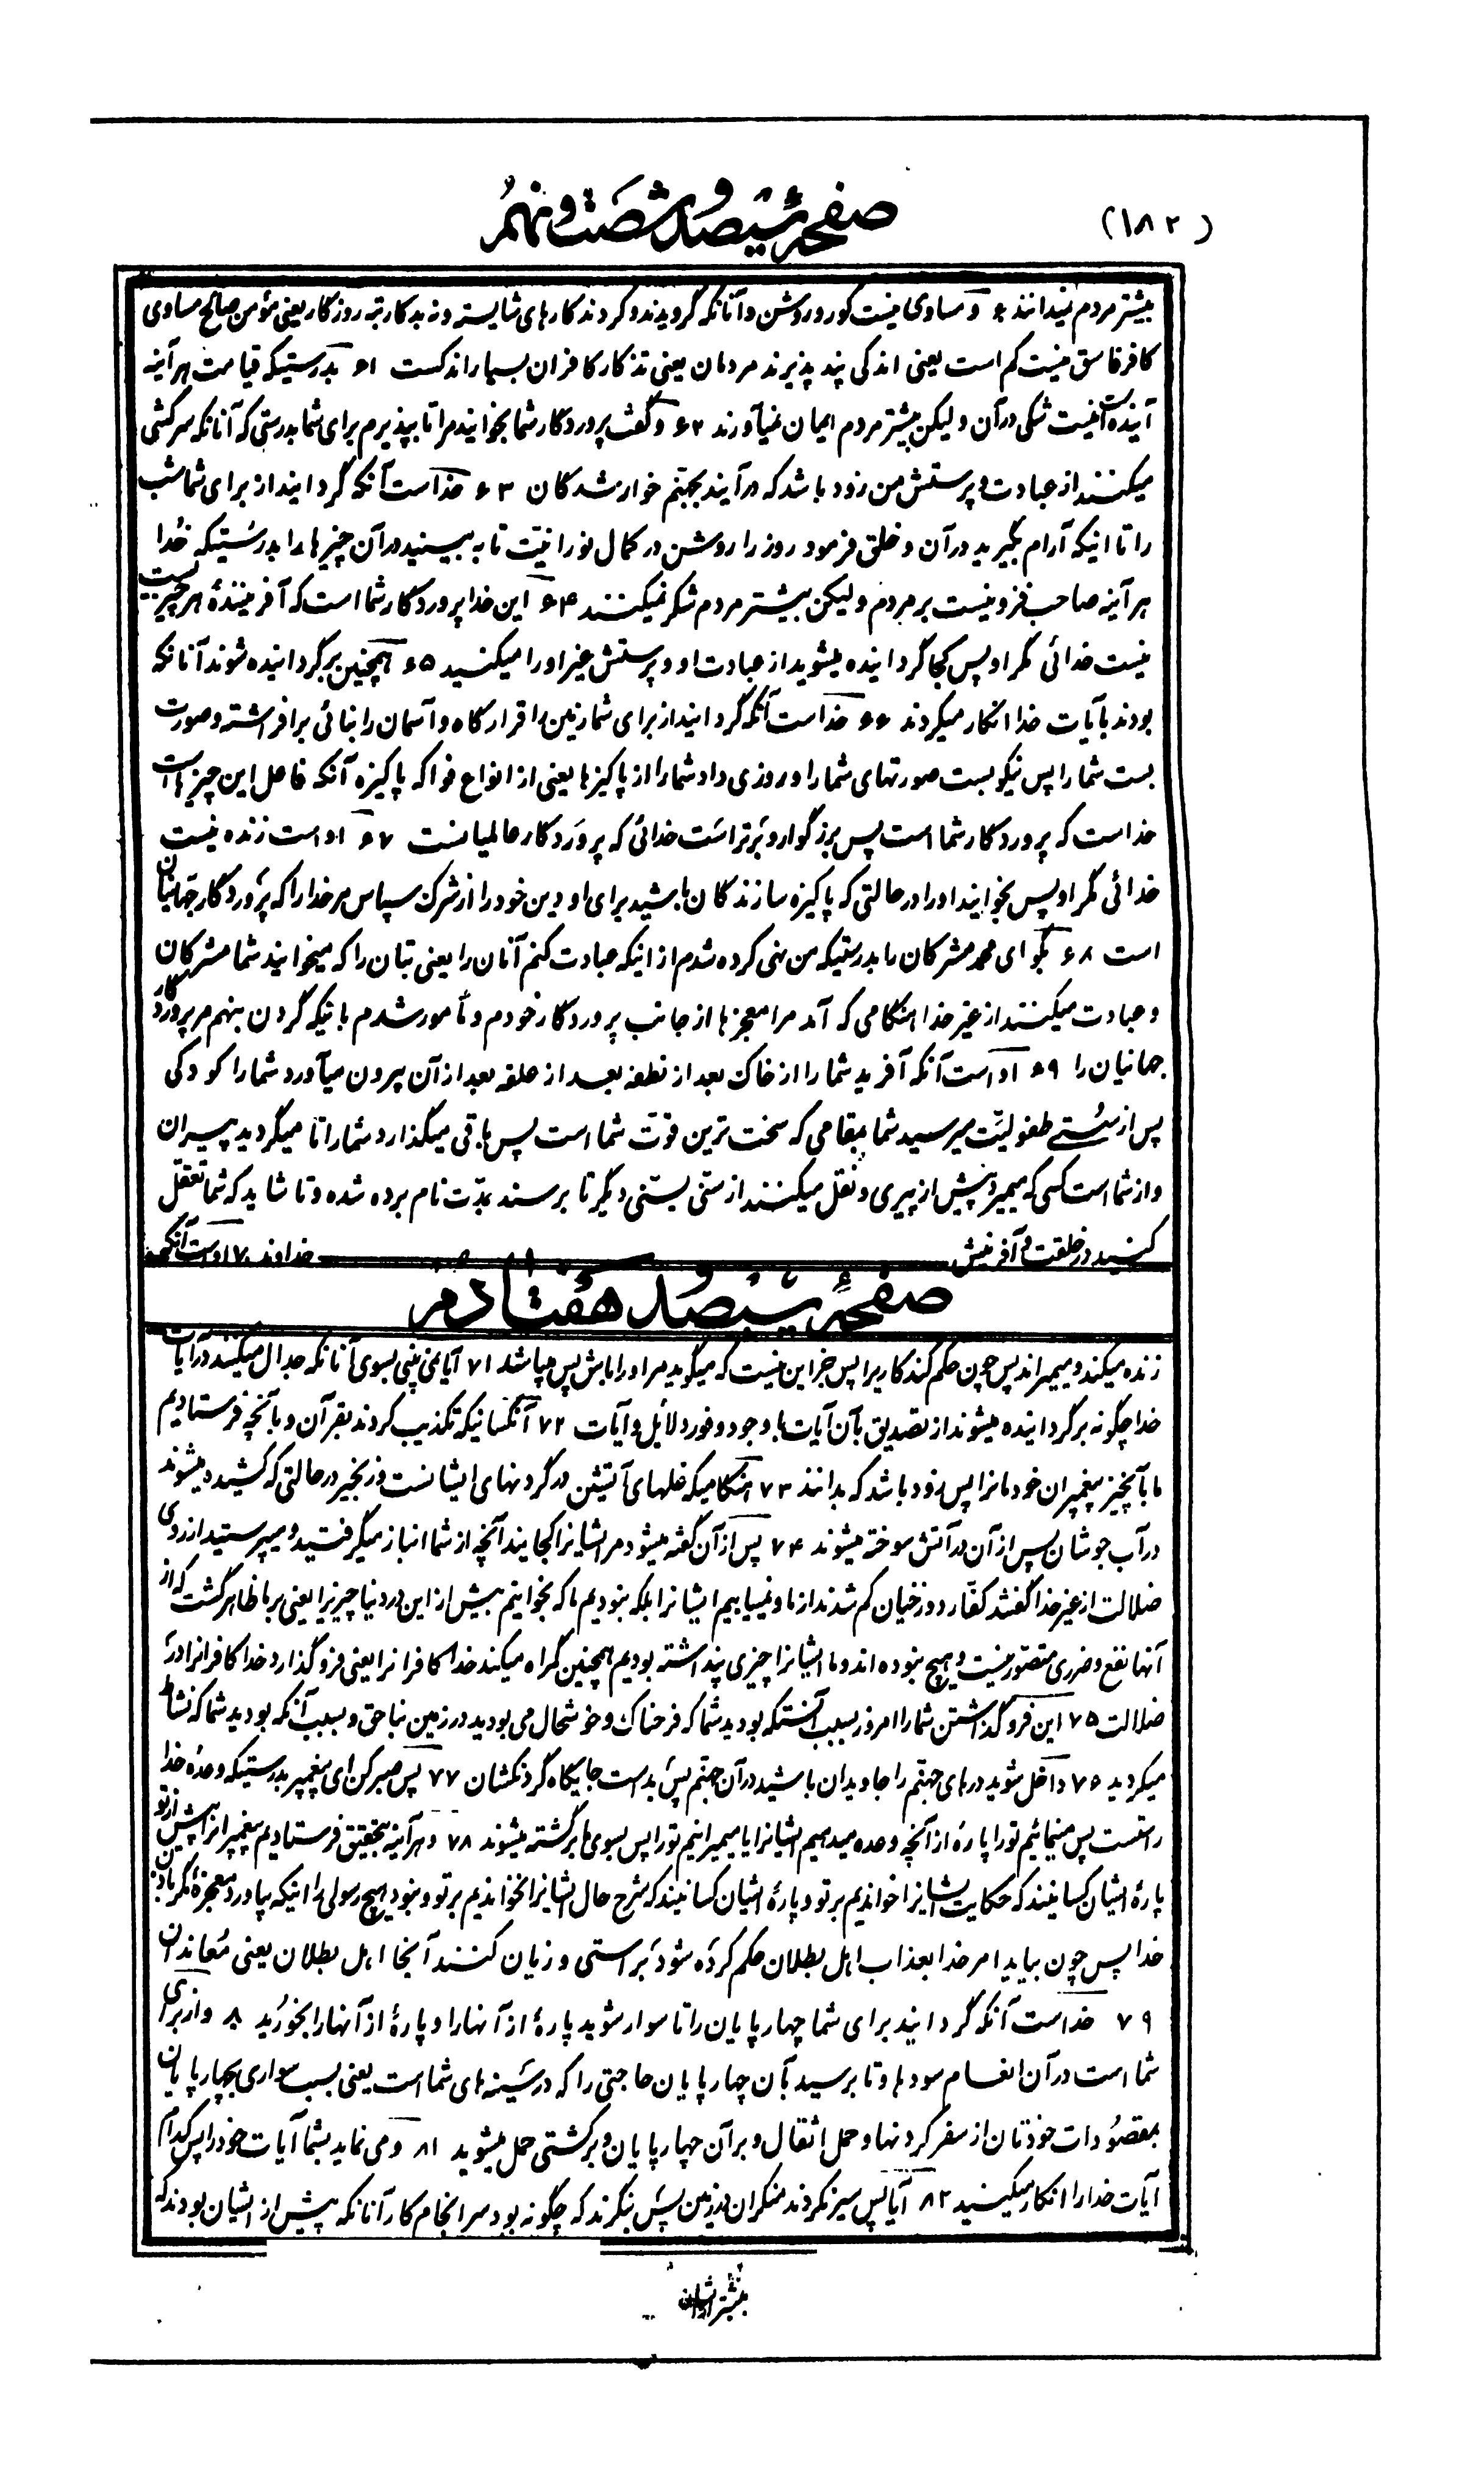 (۱۸۲)
صفحهٔ سیصد و شصت و نهم
بیشتر مردم نمیدانند ۶۰ و مساوی نیست کور و روشن و آنانکه گرویدند و کردند کارهای شایسته و نه بدکار تبه روزگار یعنی مؤمن صالح مساوی
کافر فاسق نیست کم است یعنی اندکی پند پذیرند مردمان یعنی تذکار کافران بسیار اندکست ۶۱ بدرستیکه قیامت هرآینه
آینده است نیست شکی در آن و لیکن بیشتر مردم ایمان نمیآورند ۶۲ و گفت پروردگار شما بخوانید مرا تا بپذیرم برای شما بدرستی که آنانکه سرکشی
میکنند از عبادت و پرستش من زود باشد که در آیند بجهنم خوار شدگان ۶۳ خداست آنکه گردانید از برای شما شب
را تا اینکه آرام بگیرید در آن و خلق فرمود روز را روشن در کمال نورانیّت تا به ببینید در آن چیزها را بدرستیکه خدا
هر آینه صاحب فزونیست بر مردم و لیکن بیشتر مردم شکر نمیکنند ۶۴ این خدا پروردگار شما است که آفرینندهٔ هر چیز است
نیست خدائی مگر او پس کجا گردانیده میشوید از عبادت او و پرستش غیر او را میکنید ۶۵ همچنین برگردانیده شوند آنانکه
بودند بآیات خدا انکار میکردند ۶۶ خداست آنکه گردانید از برای شما زمین را قرارگاه و آسمان را بنائی برافراشته و صورت
بست شما را پس نیکو بست صورتهای شما را و روزی داد شما را از پاکیزها یعنی از انواع فواکه پاکیزه آنکه فاعل این چیزها است
خداست که پروردگار شما است پس بزرگوار و برتر است خدائی که پروردگار عالمیانست ۶۷ او است زنده نیست
خدائی مگر او پس بخوانید او را در حالتی که پاکیزه سازندگان باشید برای او دین خود را از شرک سپاس مر خدا را که پروردگار جهانیان
است ۶۸ بگو ای محمد مشرکان را بدرستیکه من نهی کرده شدم از اینکه عبادت کنم آنان را یعنی بتان را که میخوانید شما مشرکان
و عبادت میکنند از غیر خدا هنگامی که آمد مرا معجزها از جانب پروردگار خودم و مأمور شدم بانیکه گردن بنهم مر پروردگار
جهانیان را ۶۹ او است آنکه آفرید شما را از خاک بعد از نطفه بعد از علقه بعد از آن بیرون میآورد شما را کودکی
پس از سستی طفولیّت میرسید شما بمقامی که سخت ترین قوّت شما است پس باقی میگذارد شما را تا میگردید پیران
و از شما است کسی که میمیرد پیش از پیری و نقل میکنند از سنّی بسنّی دیگر تا برسند بمدّت نام برده شده و تا شاید که شما تعقّل
کنید در خلقت و آفرینش خداوند ۷۰ اوست آنکه
صفحهٔ سیصد و هفتادم
زنده میکند و میمیراند پس چون حکم کند کاریرا پس جز این نیست که میگوید مر او را باش پس میباشد ۷۱ آیا نمی بینی بسوی آنانکه جدال میکنند در آیات
خدا چگونه برگردانیده میشوند از تصدیق بآن آیات با وجود وفور دلائل و آیات ۷۲ آنکسانیکه تکذیب کردند بقرآن و بآنچه فرستادیم
ما بآنچیز پیغمبران خودمانرا پس زود باشد که بدانند ۷۳ هنگامیکه غلهای آتشین در گردنهای ایشانست و زنجیر در حالتی که کشیده میشوند
در آب جوشان پس از آن در آتش سوخته میشوند ۷۴ پس از آن گفته میشود مر ایشانرا کجایند آنچه از شما انباز میگرفتید و میپرستید از روی
ضلالت از غیر خدا گفتند کفّار دوزخیان گم شدند از ما و نمییابیم ایشانرا بلکه نبودیم ما که بخوانیم پیش از این در دنیا چیزیرا یعنی بر ما ظاهر گشت که از
آنها نفع و ضرری متصوّر نیست و هیچ نبوده اند و ما ایشانرا چیزی پنداشته بودیم همچنین گمراه میکند خدا کافرانرا یعنی فرو گذارد خدا کافرانرا در
ضلالت ۷۵ این فرو گذاشتن شما را امروز بسبب آنستکه بودید شما که فرحناک و خوشحال می بودید در زمین بناحق و بسبب آنکه بودید شما که نشاط
میکردید ۷۶ داخل شوید درهای جهنم را جاویدان باشید در آن جهنم پس بد است جایگاه گردنکشان ۷۷ پس صبر کن ای پیغمبر بدرستیکه وعدهٔ خدا
راستست پس مینمائیم تو را پارهٔ از آنچه وعده میدهیم ایشانرا یا میمیرانیم تو را پس بسوی ما برگشته میشوند ۷۸ و هرآینه بتحقیق فرستادیم پیغمبرانرا پیش از تو
پارهٔ ایشان کسانیند که حکایت ایشانرا خواندیم بر تو و پارهٔ ایشان کسانیند که شرح حال ایشانرا نخواندیم بر تو و نبود هیچ رسولی را اینکه بیاورد معجزهٔ مگر باذن
خدا پس چون بیاید امر خدا بعذاب اهل بطلان حکم کرده شود براستی و زیان کنند آنجا اهل بطلان یعنی معاندان
۷۹ خداست آنکه گردانید برای شما چهارپایان را تا سوار شوید پارهٔ از آنها را و پارهٔ از آنها را بخورید ۸۰ و از برای
شما است در آن انعام سودها و تا برسید بآن چهارپایان حاجتی را که در سینه های شما است یعنی بسبب سواری بچهارپایان
بمقصودات خودتان از سفر کردنها و حمل اثقال و بر آن چهارپایان و بر کشتی حمل میشوید ۸۱ و می نماید بشما آیات خود را پس کدام
آیات خدا را انکار میکنید ۸۲ آیا پس سیر نکردند منکران در زمین پس بنگرند که چگونه بود سرانجام کار آنانکه پیش از ایشان بودند که
بیشتر از ایشان